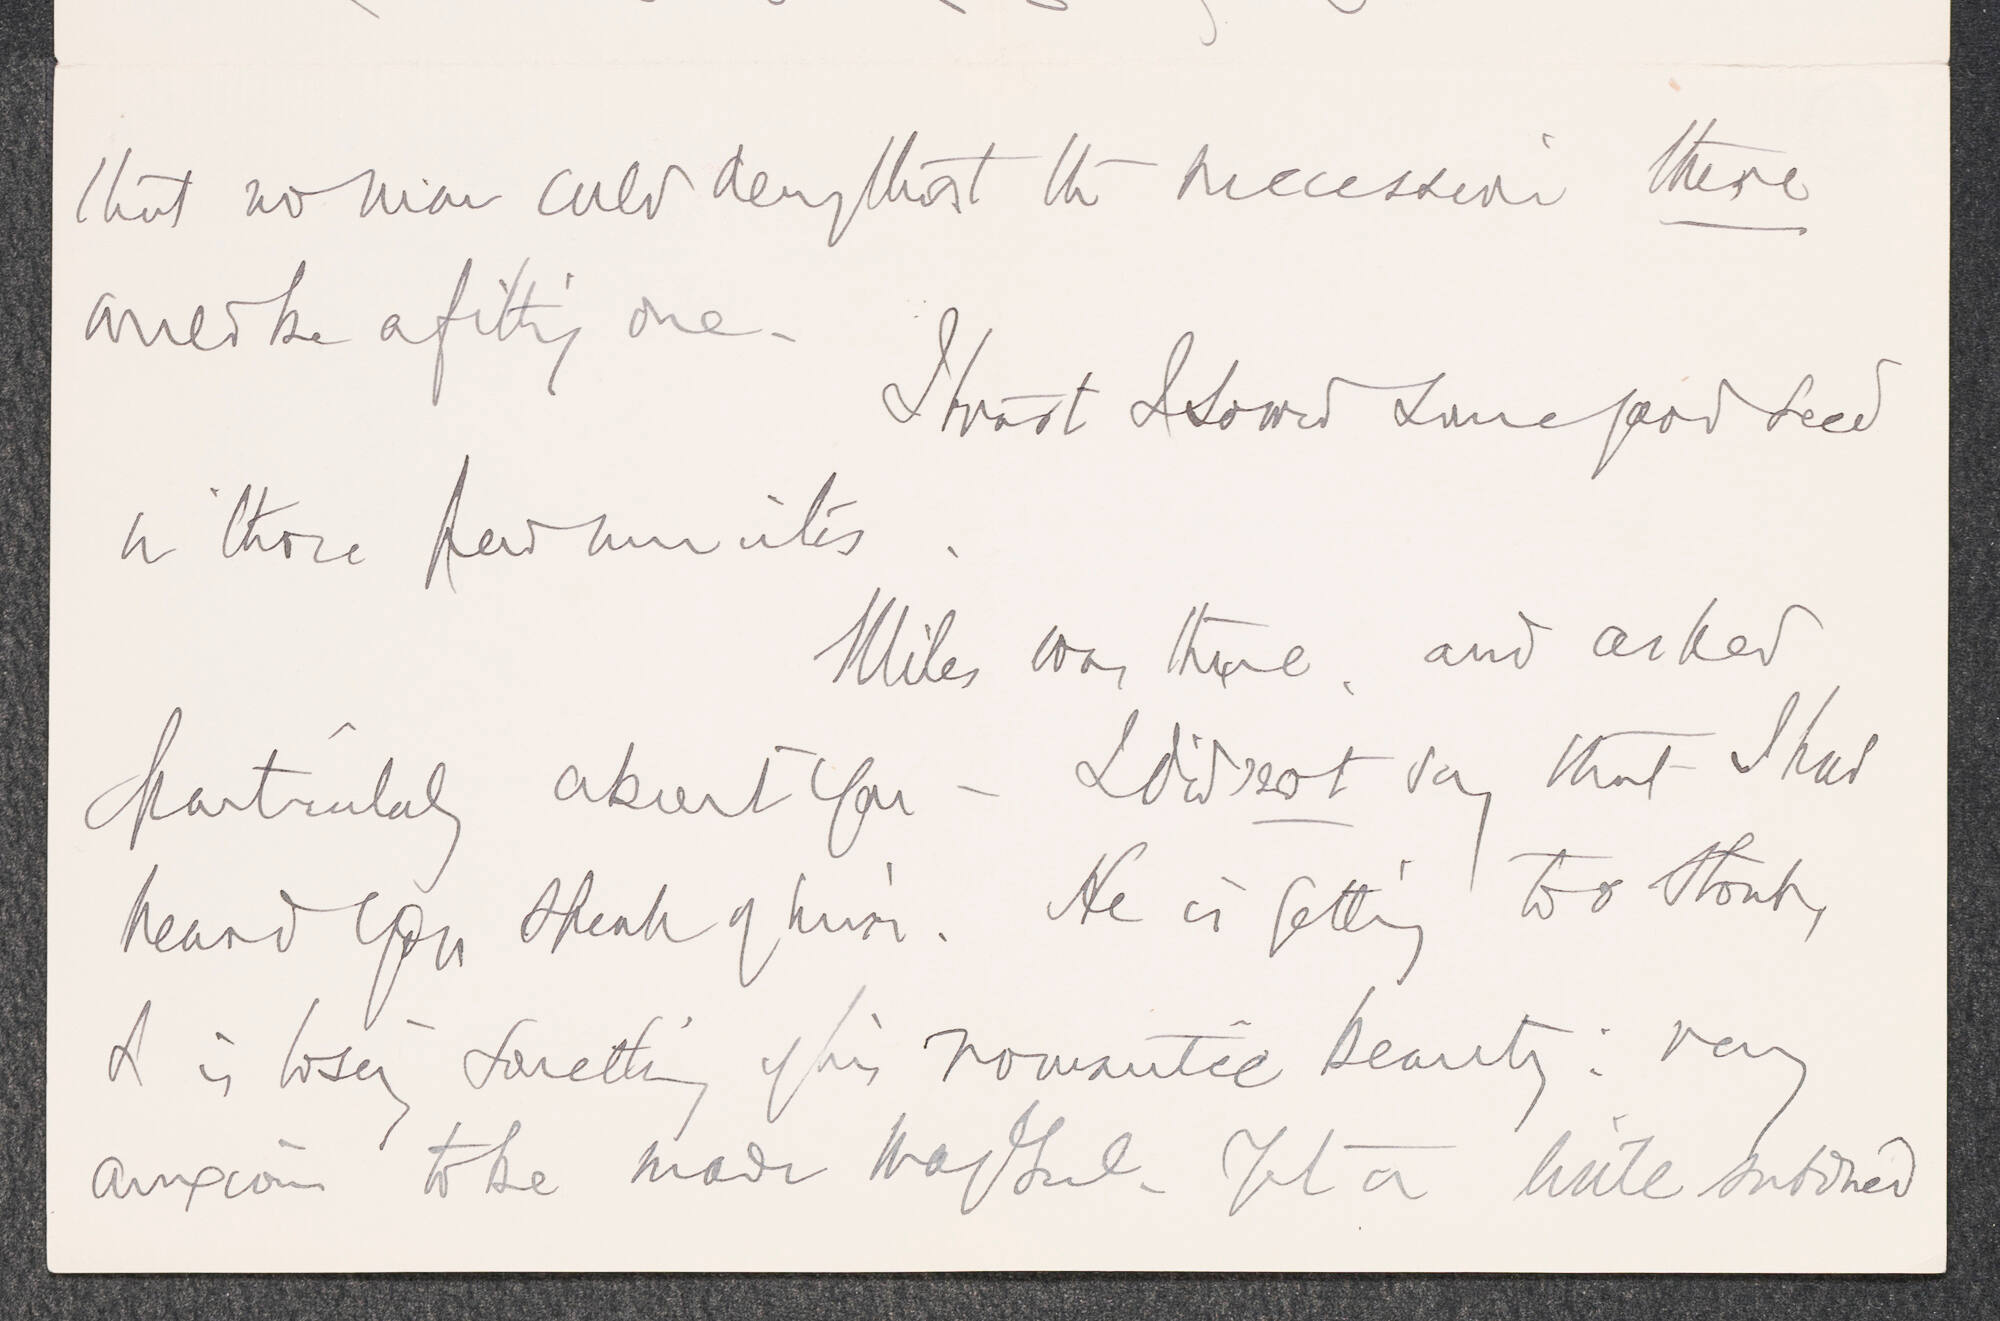 that no man could deny that the succession there
would be a fitting one -
I trust I sowed some good seed
in those few minutes.
Miles was there, and asked
particularly about you - I did not say that I had
heard you speak of him. He is getting too stout,
& is losing something of his romantic beauty: very
anxious to be made Maj Genl - Yet a little subdued